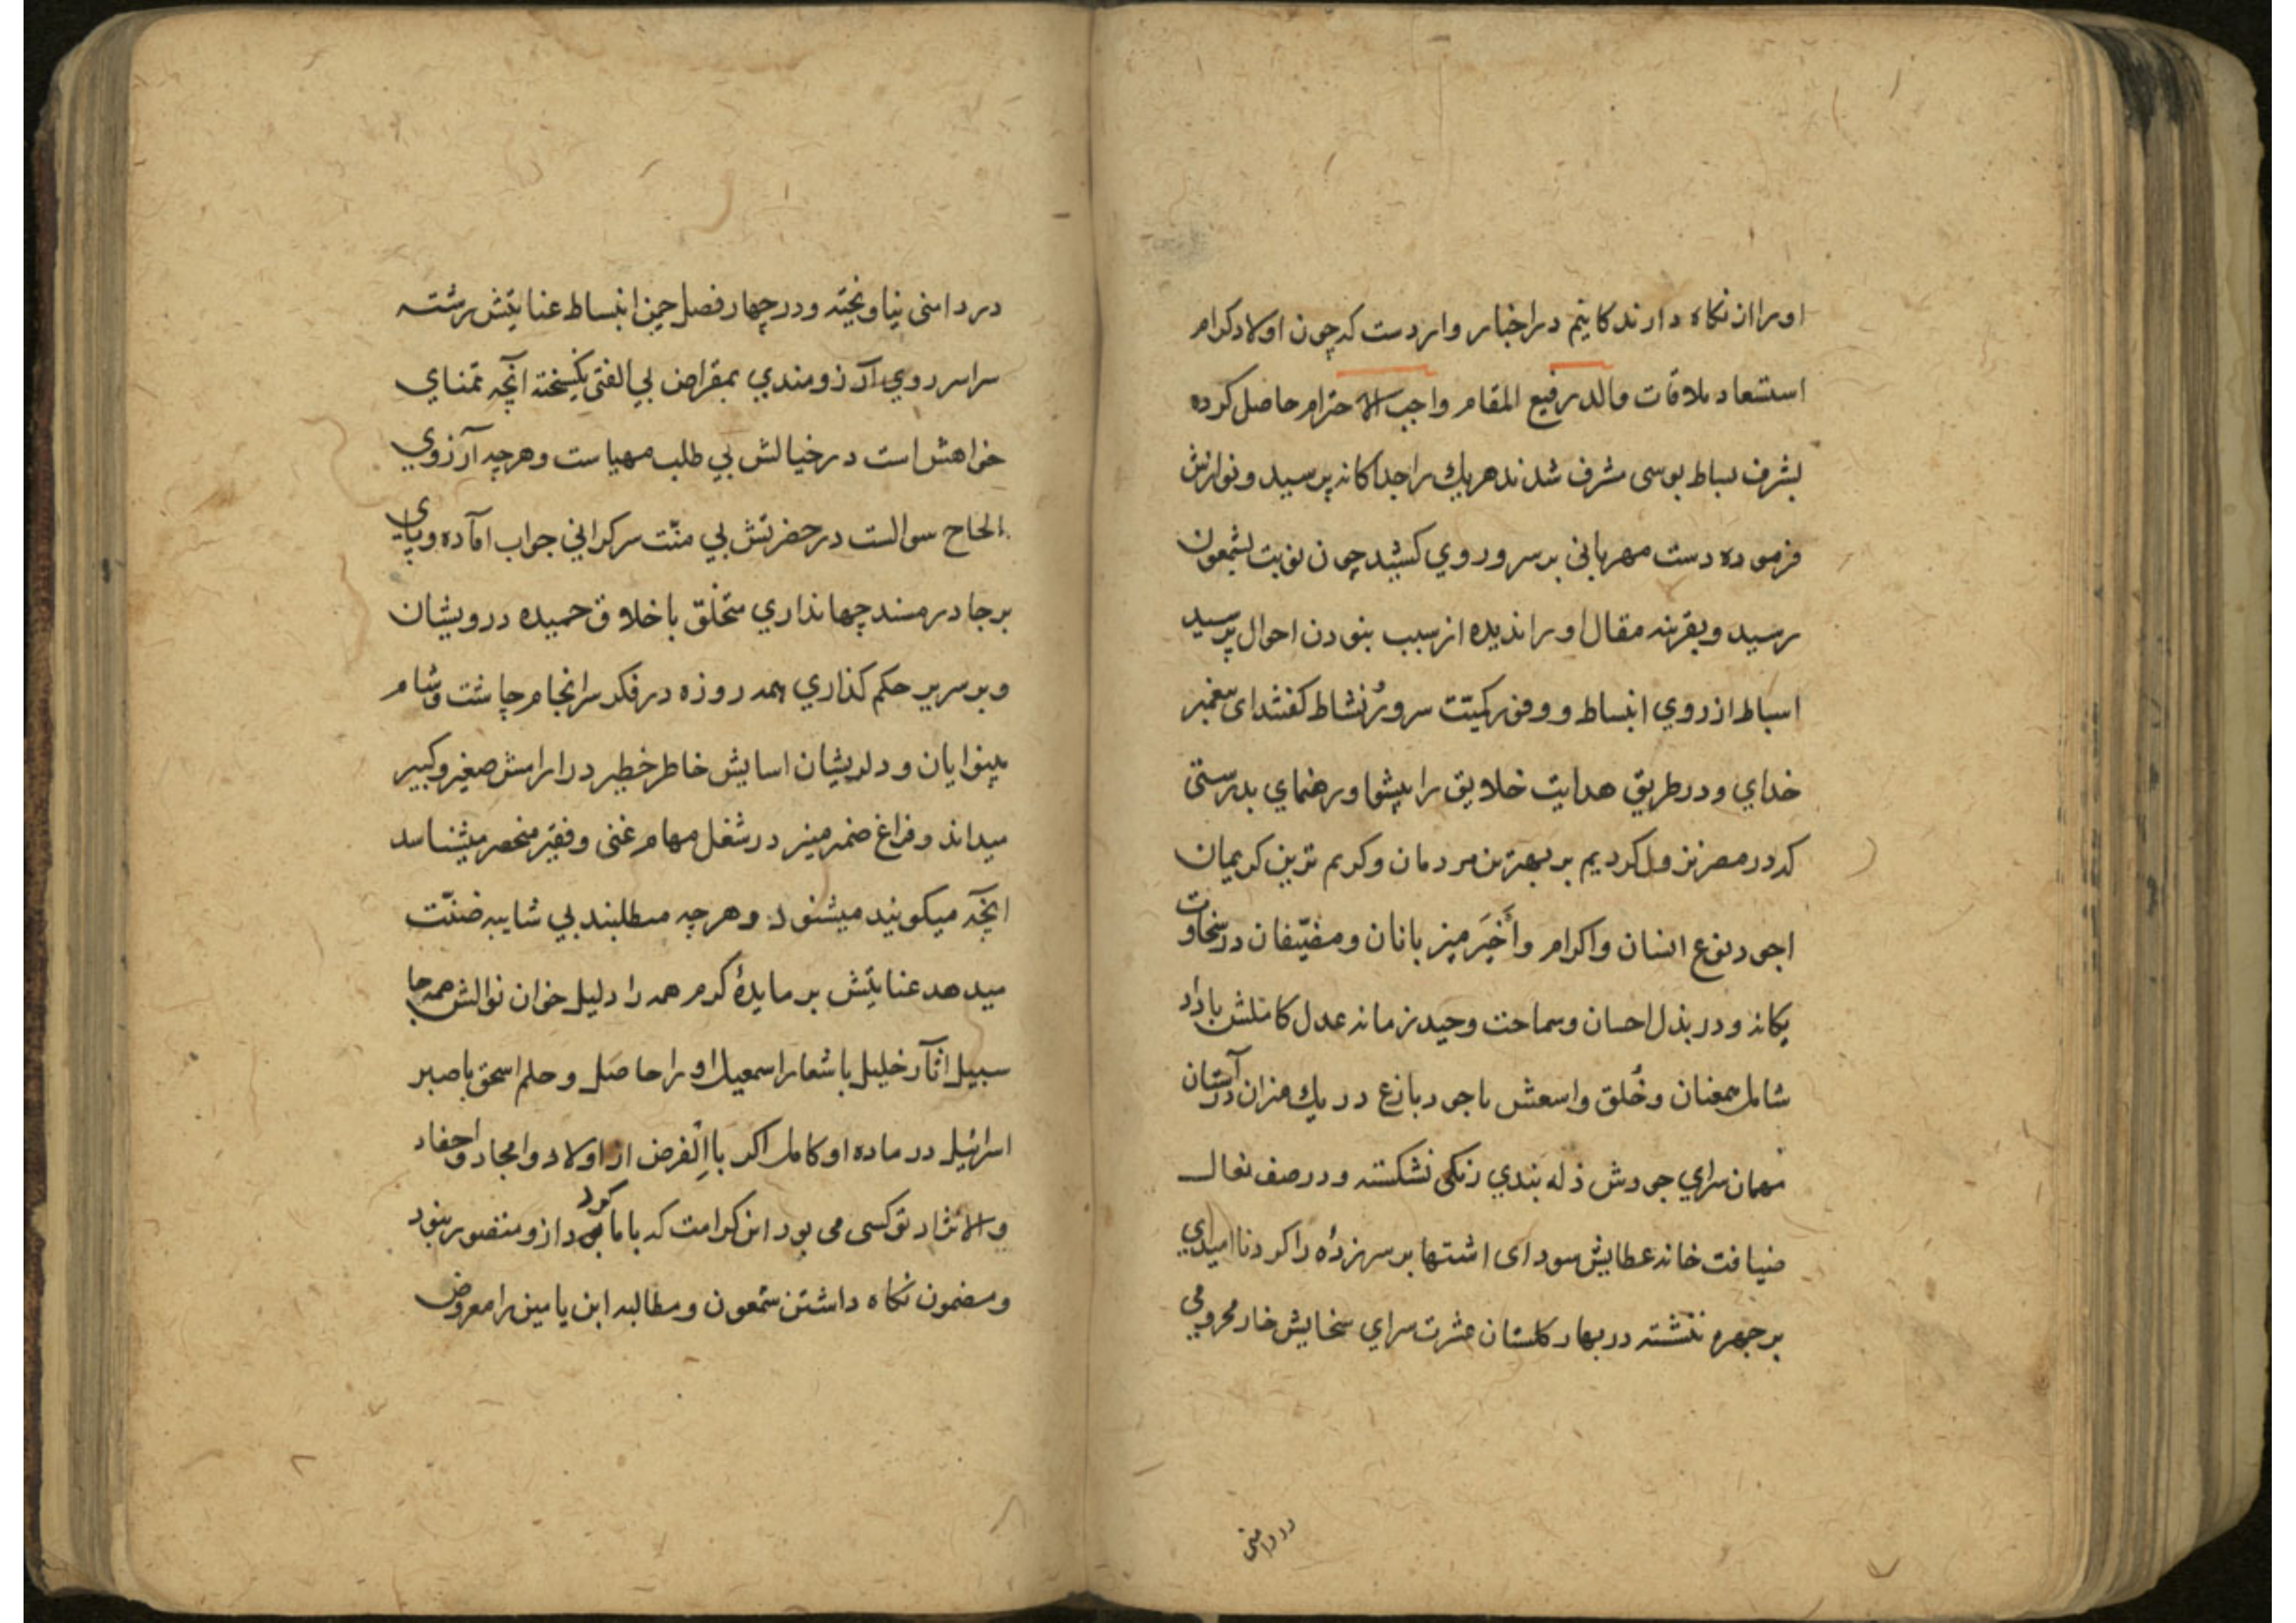 اورا از نكاه دارند كاتيم در اخبار وارد ست كه چون اولاد كرام
استسعاد ملاقات والد رفيع المقام واجب الاحترام حاصل كرده
بشرف بساط بوسى مشرف شدند هريك را جداكانه پرسيد و نوازش
فرموده دست مهربانى بر سر و روي كشيد چون نوبت بشمعون
رسيد و بقرينه مقال او را نديده از سبب نبودن احوال پرسيد
اسباط از روي انبساط و وفور كميت سرور نشاط كفتند اى پيغمبر
خداي و در طريق هدايت خلايق را پيشوا و رهنماي بدرستى
كه در مصر نزول كرديم بر بهترين مردمان و كريم ترين كريمان
اجود نوع انسان و اكرام و أَخْيَر ميزبانان و مضيّفان در سخاوت
يكانه و در بذل احسان و سماحت وحيد زمانه عدل كاملش با داد
شامل همعنان و خُلق واسعش با جود بارع در يك ميزان در آستان
مهمان سراي جودش ذله بندي زنكى نشكسته و در صف نعال
ضيافت خانه عطايش سوداى اشتها بر سر نزده را كرد نااميدي
بر چهره ننشسته در بهار كلستان عشرت سراي سخايش خار محرومي
در دامنى
در دامنى نياويخته و در چهار فصل چمن انبساط عنايتش رشته
سراسر روي آرزومندي بمقراض بي الفتى نكسيخته آنچه تمناي
خواهش است در خيالش بي طلب مهياست و هرچه آرزوي
الحاح سوالست در حضرتش بي منّت سركرانى جواب آماده و پاي
برجا در مسند جهانداري متخلّق باخلاق حميده درويشان
و بر سرير حكم كذاري همه روزه در فكر سرانجام چاشت و شام
بينوايان و دلريشان اسايش خاطر خطير در ارامش صغير و كبير
ميداند و فراغ ضمير منير در شغل مهام غنى و فقير منحصر ميشناسد
انچه ميكويند ميشنود و هرچه مطلبند بي شايبه ضنّت
ميدهد عنايتش بر مايدۀ كرم همه را دليل خوان نوالش همه جا
سبيل اثار خليل با شعار اسمعيل او را حاصل و حلم اسحق با صبر
اسرائيل در ماده او كامل اكر بالفرض از اولاد و امجاد و احفاد
والانژاد تو كسى مى بود اين كرامت كه باما كرد از و متصور نبود
و مضمون نكاه داشتن شمعون و مطالبه ابن يامين را معروض